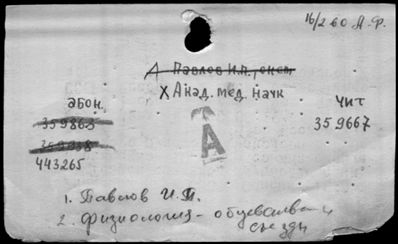 16/2 60 А.Ф.
А Павлов И.П.,
X Акад. мед. наук
абон. чит
359863 359667
359938
443265
А
1. Павлов И.П.
2. Физиология - общества и
съезды